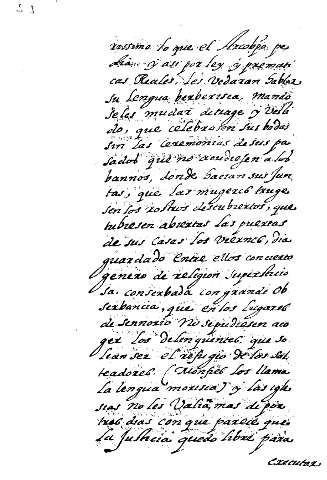 rissimo lo que el Arcobpo pe
dia: y asi por ley y premati
cas Reales, les vedaran hablar
su lengua berberisca, mandó
seles mudar de trage y vesti
do, que celebrasen sus bodas
sin las ceremonias de sus pa
sados que no acudiesen a los
bannos, donde hacian sus jun
tas, que las mugeres truge
sen los rostros descubiertos, que
tubiesen abiertas las puertas
de sus casas los viernes, dia
guardado entre ellos concierto
genero de religion supersticio
sa, conserbada con grande ob
serbancia, que en los lugares
de sennorio no se pudiesen aco
ger los delinquentes, que so
lean ser el refugio de los sal
teadores (Monfies los llama
la lengua morisca) y las igle
sias no les valia, mas de por
tres dias con que parece que
la Justicia quedo libre para
executar